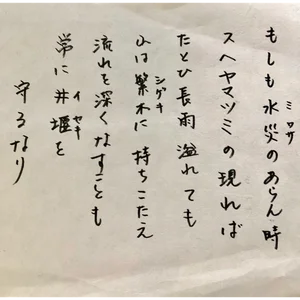 もしも水災のあらん時
ミワサ
スヘヤマツミの現れば
たとひ長雨溢れても
シゲキ
山は繁木に持ちこたえ
流れを深くなすことも
イセキ
常に井堰を
守るなり